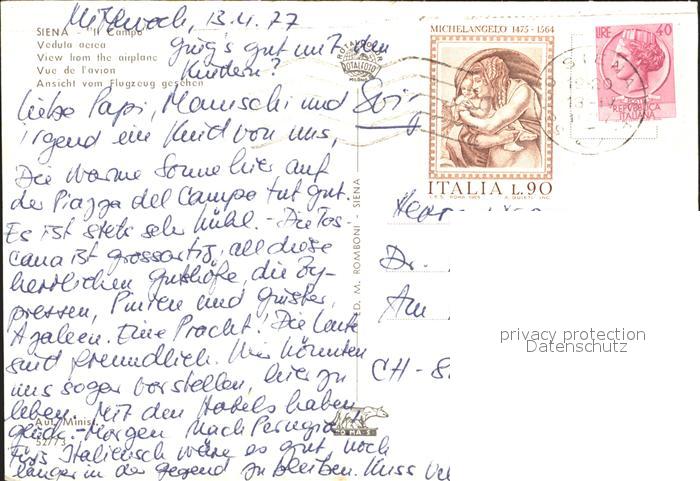 Mittwoch, 13.4.77
SIENA - Il Campo
Veduta aerea
View from the airplane
Vue de l'avion
Ansicht vom Flugzeug gesehen
Ging's gut mit den
Kindern?
Liebe Papi, Mamschi und
irgend ein Kind von uns,
Die warme Sonne hier auf
der Piazza del Campo tut gut.
Es ist stets sehr kühl. - Die Tos-
cana ist grossartig, all diese
herrlichen Gutshöfe, die Zy-
pressen, Pinien und Ginster,
Azaleen. Eine Pracht! Die Leute
sind freundlich. Wir könnten
uns sogar vorstellen, hier zu
leben. Mit den Hotels haben
Glück. - Morgen nach Perugia.
Fürs Italienisch wäre es gut noch
länger in der Gegend zu bleiben. Kuss
Aut. Minist.
52773
D. M. ROMBONI - SIENA
ROTALFOTO
MILANO
MICHELANGELO 1475 - 1564
ITALIA L.90
I.P.S. ROMA 1975
LIRE 40
REPUBBLICA
ITALIANA
SIENA
Dr.
Am
CH - 8
privacy protection
Datenschutz